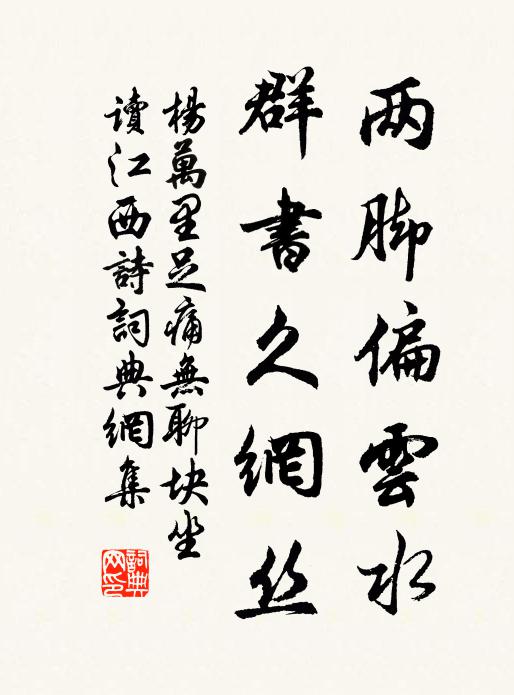 两脚偏雲水
群書久網丝
楊萬里足痛無聊块坐
讀江西詩詞典網集
詞典网印